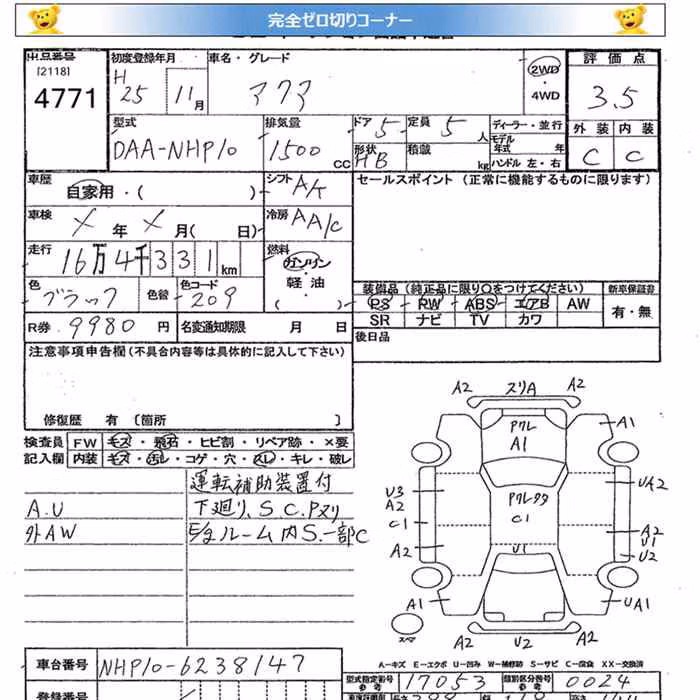 完全ゼロ切りコーナー
出品番号
[2118]
4771
初度登録年月
H
25 11月
車名・グレード
アクア
2WD
・
4WD
評価点
3.5
外装 内装
C C
型式
DAA-NHP10
排気量
1500 cc
ドア 5
形状 HB
定員 5 人
積載 kg
ディーラー・並行
モデル年式 年
ハンドル 左・右
車歴
自家用・( )
シフト
A/
セールスポイント (正常に機能するものに限ります)
車検
X 年 X 月( 日)
冷房
AA/c
走行
16万4千331km
燃料
ガソリン
・
軽油
( )
色
ブラック
色替
色コード
209
装備品 (純正品に限り〇をつけてください)
新車保証書
PS PW ABS エアB AW
SR ナビ TV カワ
有・無
R券 9980 円
名変通知期限 月 日
後日品
注意事項申告欄(不具合内容等は具体的に記入して下さい)
修復歴 有 〔箇所 〕
検査員
記入欄
FW キズ・飛石・ヒビ割・リペア跡・×要
内装 キズ・汚レ・コゲ・穴・スレ・キレ・破レ
運転補助装置付
A.U
下廻り、S C.Pヌリ
外AW
ルーム内S.一部C
A2 スリA A2
A1
アクレ
A1
U3
A2
C1
A2
A1
アクレタタ
C1
U1
UA2
A2
U1
U2
UA1
スペア
A2 U2 A2
A-キズ E-エクボ U-凹み W-補修跡 S-サビ C-腐食 XX-交換済
車台番号
NHP10-6238147
型式指定番号
参考
17053
類別区分番号
参考
0024
登録番号